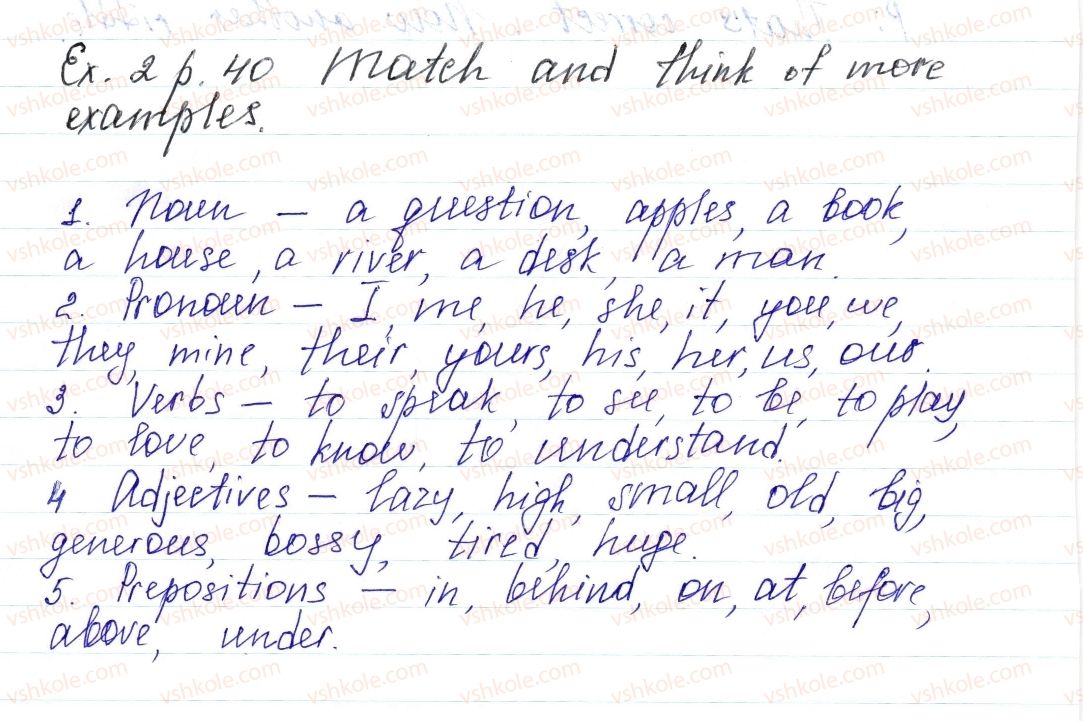 Ex. 2 p. 40 Match and think of more
examples.
1. Noun – a question, apples, a book,
a house, a river, a desk, a man.
2. Pronoun – I, me, he, she, it, you, we,
they, mine, their, yours, his, her, us, our.
3. Verbs – to speak, to see, to be, to play,
to love, to know, to understand.
4 Adjectives – lazy, high, small, old, big,
generous, bossy, tired, huge.
5. Prepositions – in, behind, on, at, before,
above, under.
vshkole.com